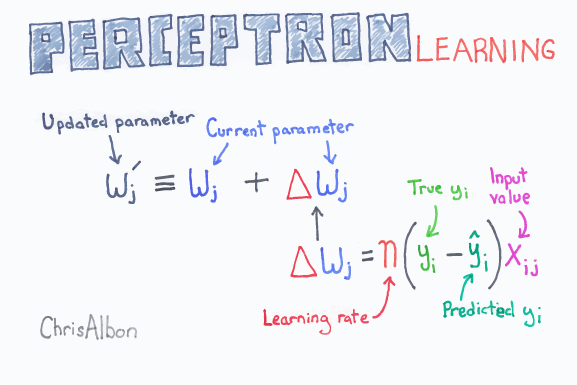 PERCEPTRON LEARNING
Updated parameter
Current parameter
Wj′ ≡ Wj + ΔWj
True yi
Input
value
ΔWj = η(yi − ŷi)xij
Learning rate
Predicted yi
ChrisAlbon